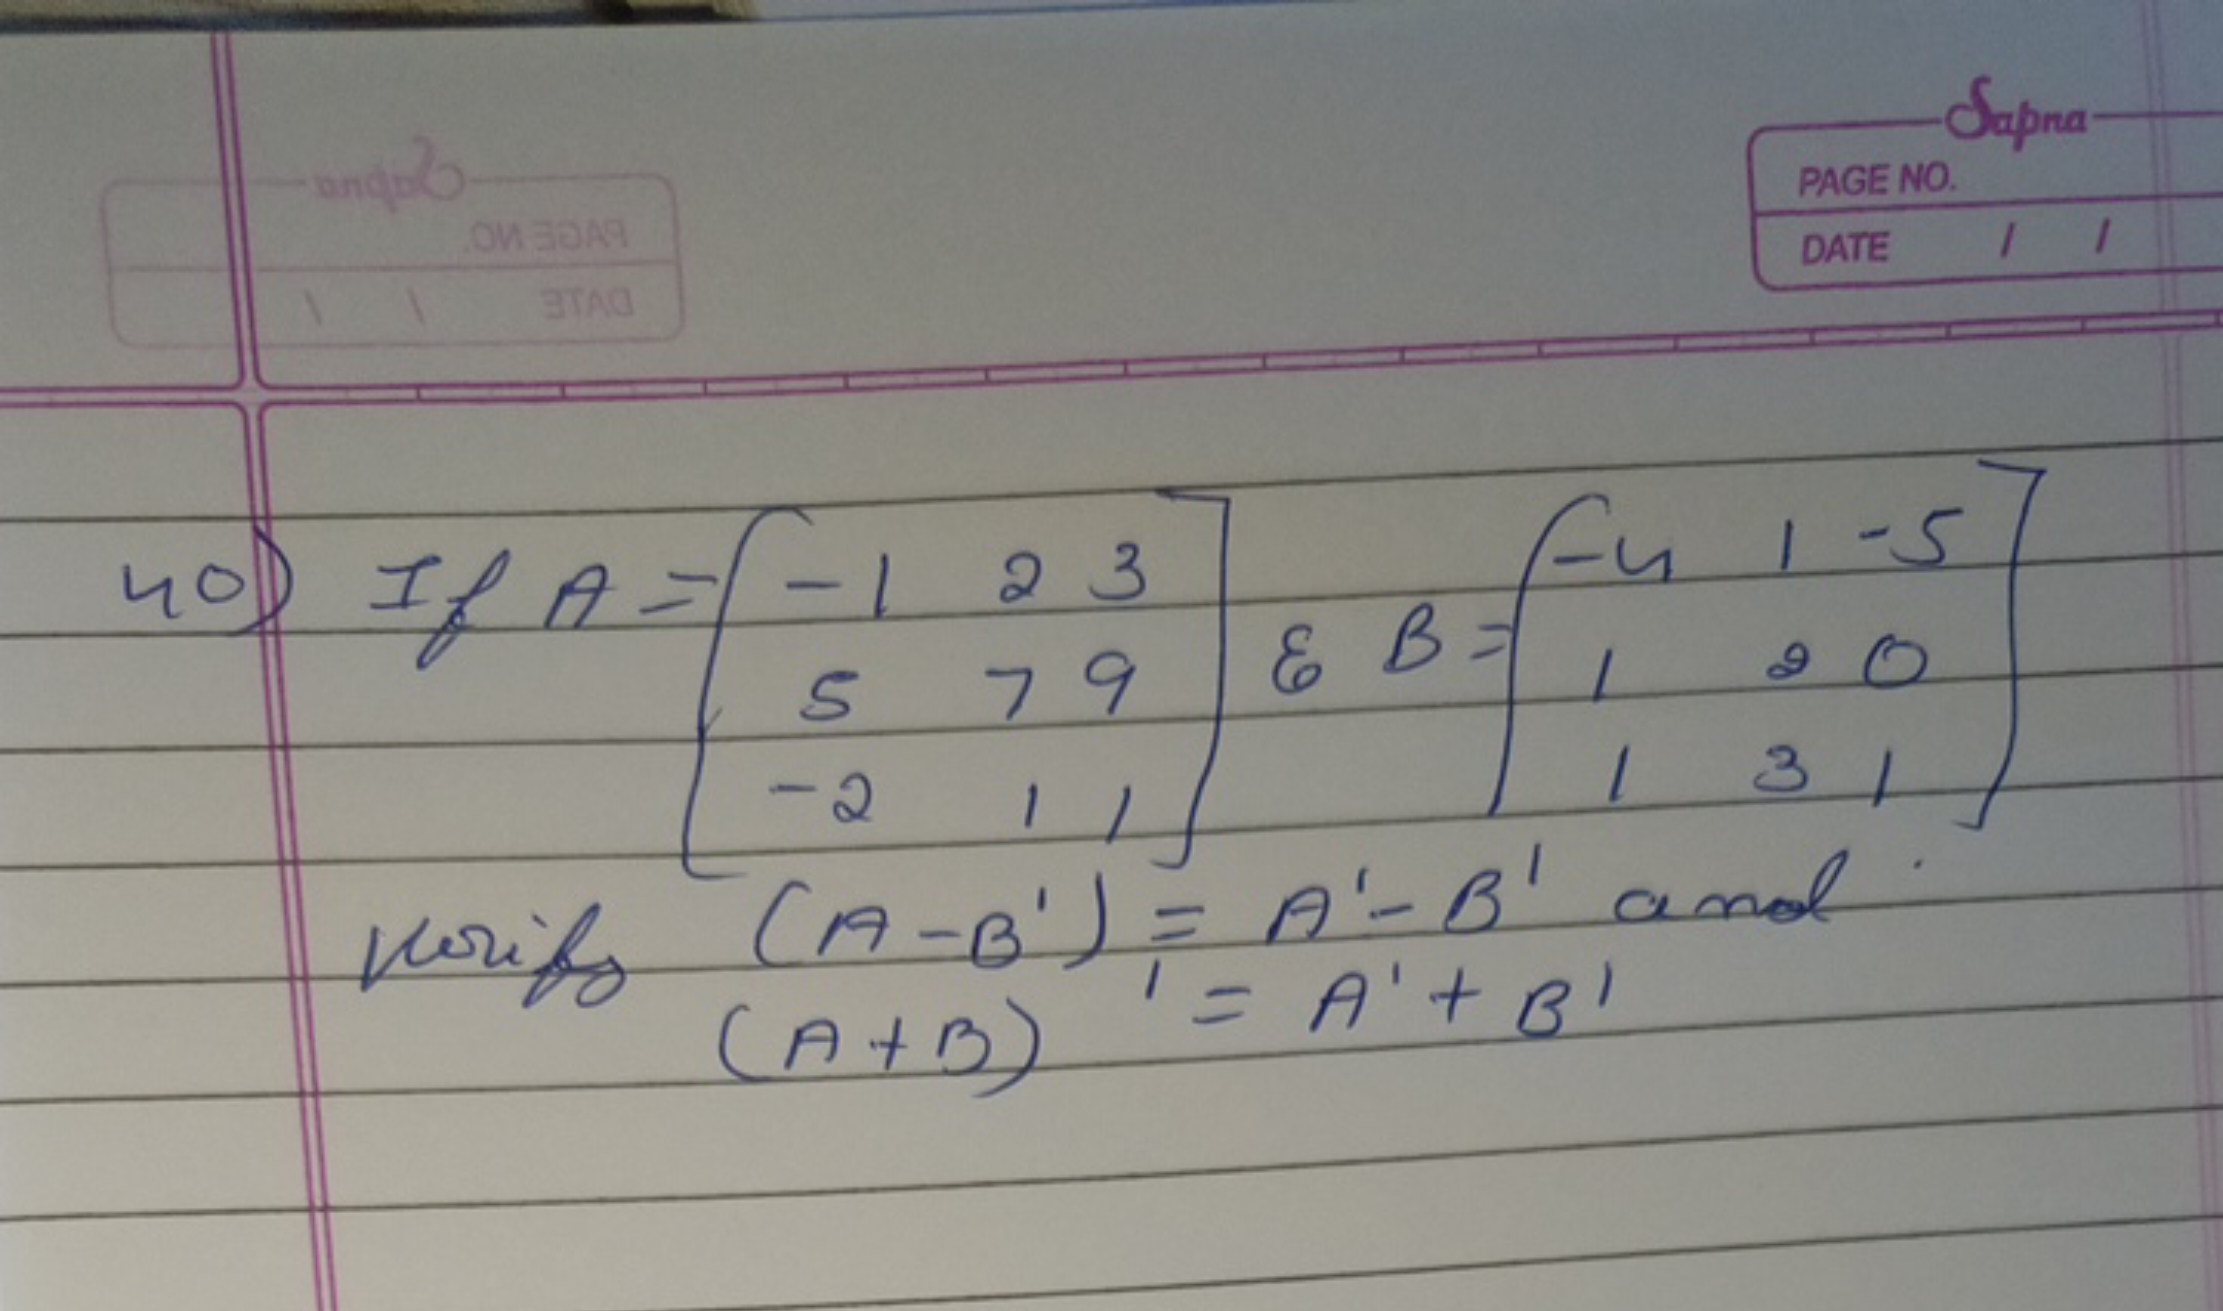 Sapna
PAGE NO.
DATE / /
40) If A = [-1 2 3
5 7 9
-2 1 1] & B = [-4 1 -5
1 2 0
1 3 1]
Verify (A-B') = A'- B' and
(A+B)' = A' + B'